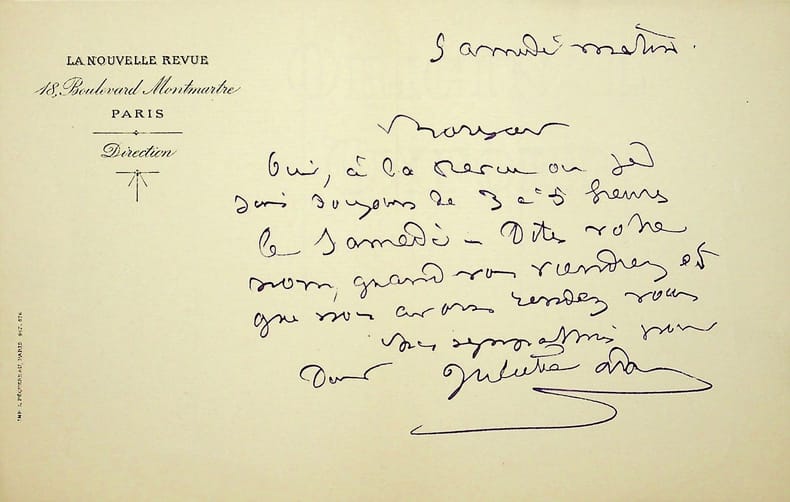 LA NOUVELLE REVUE
18, Boulevard Montmartre
PARIS
Direction
Samedi matin.
Monsieur
Oui, à la Revue où je
suis toujours de 3 à 5 heures
le Samedi – Dites votre
nom, quand vous viendrez et
que nous avons rendez vous
mes sympathies pour
Juliette Adam